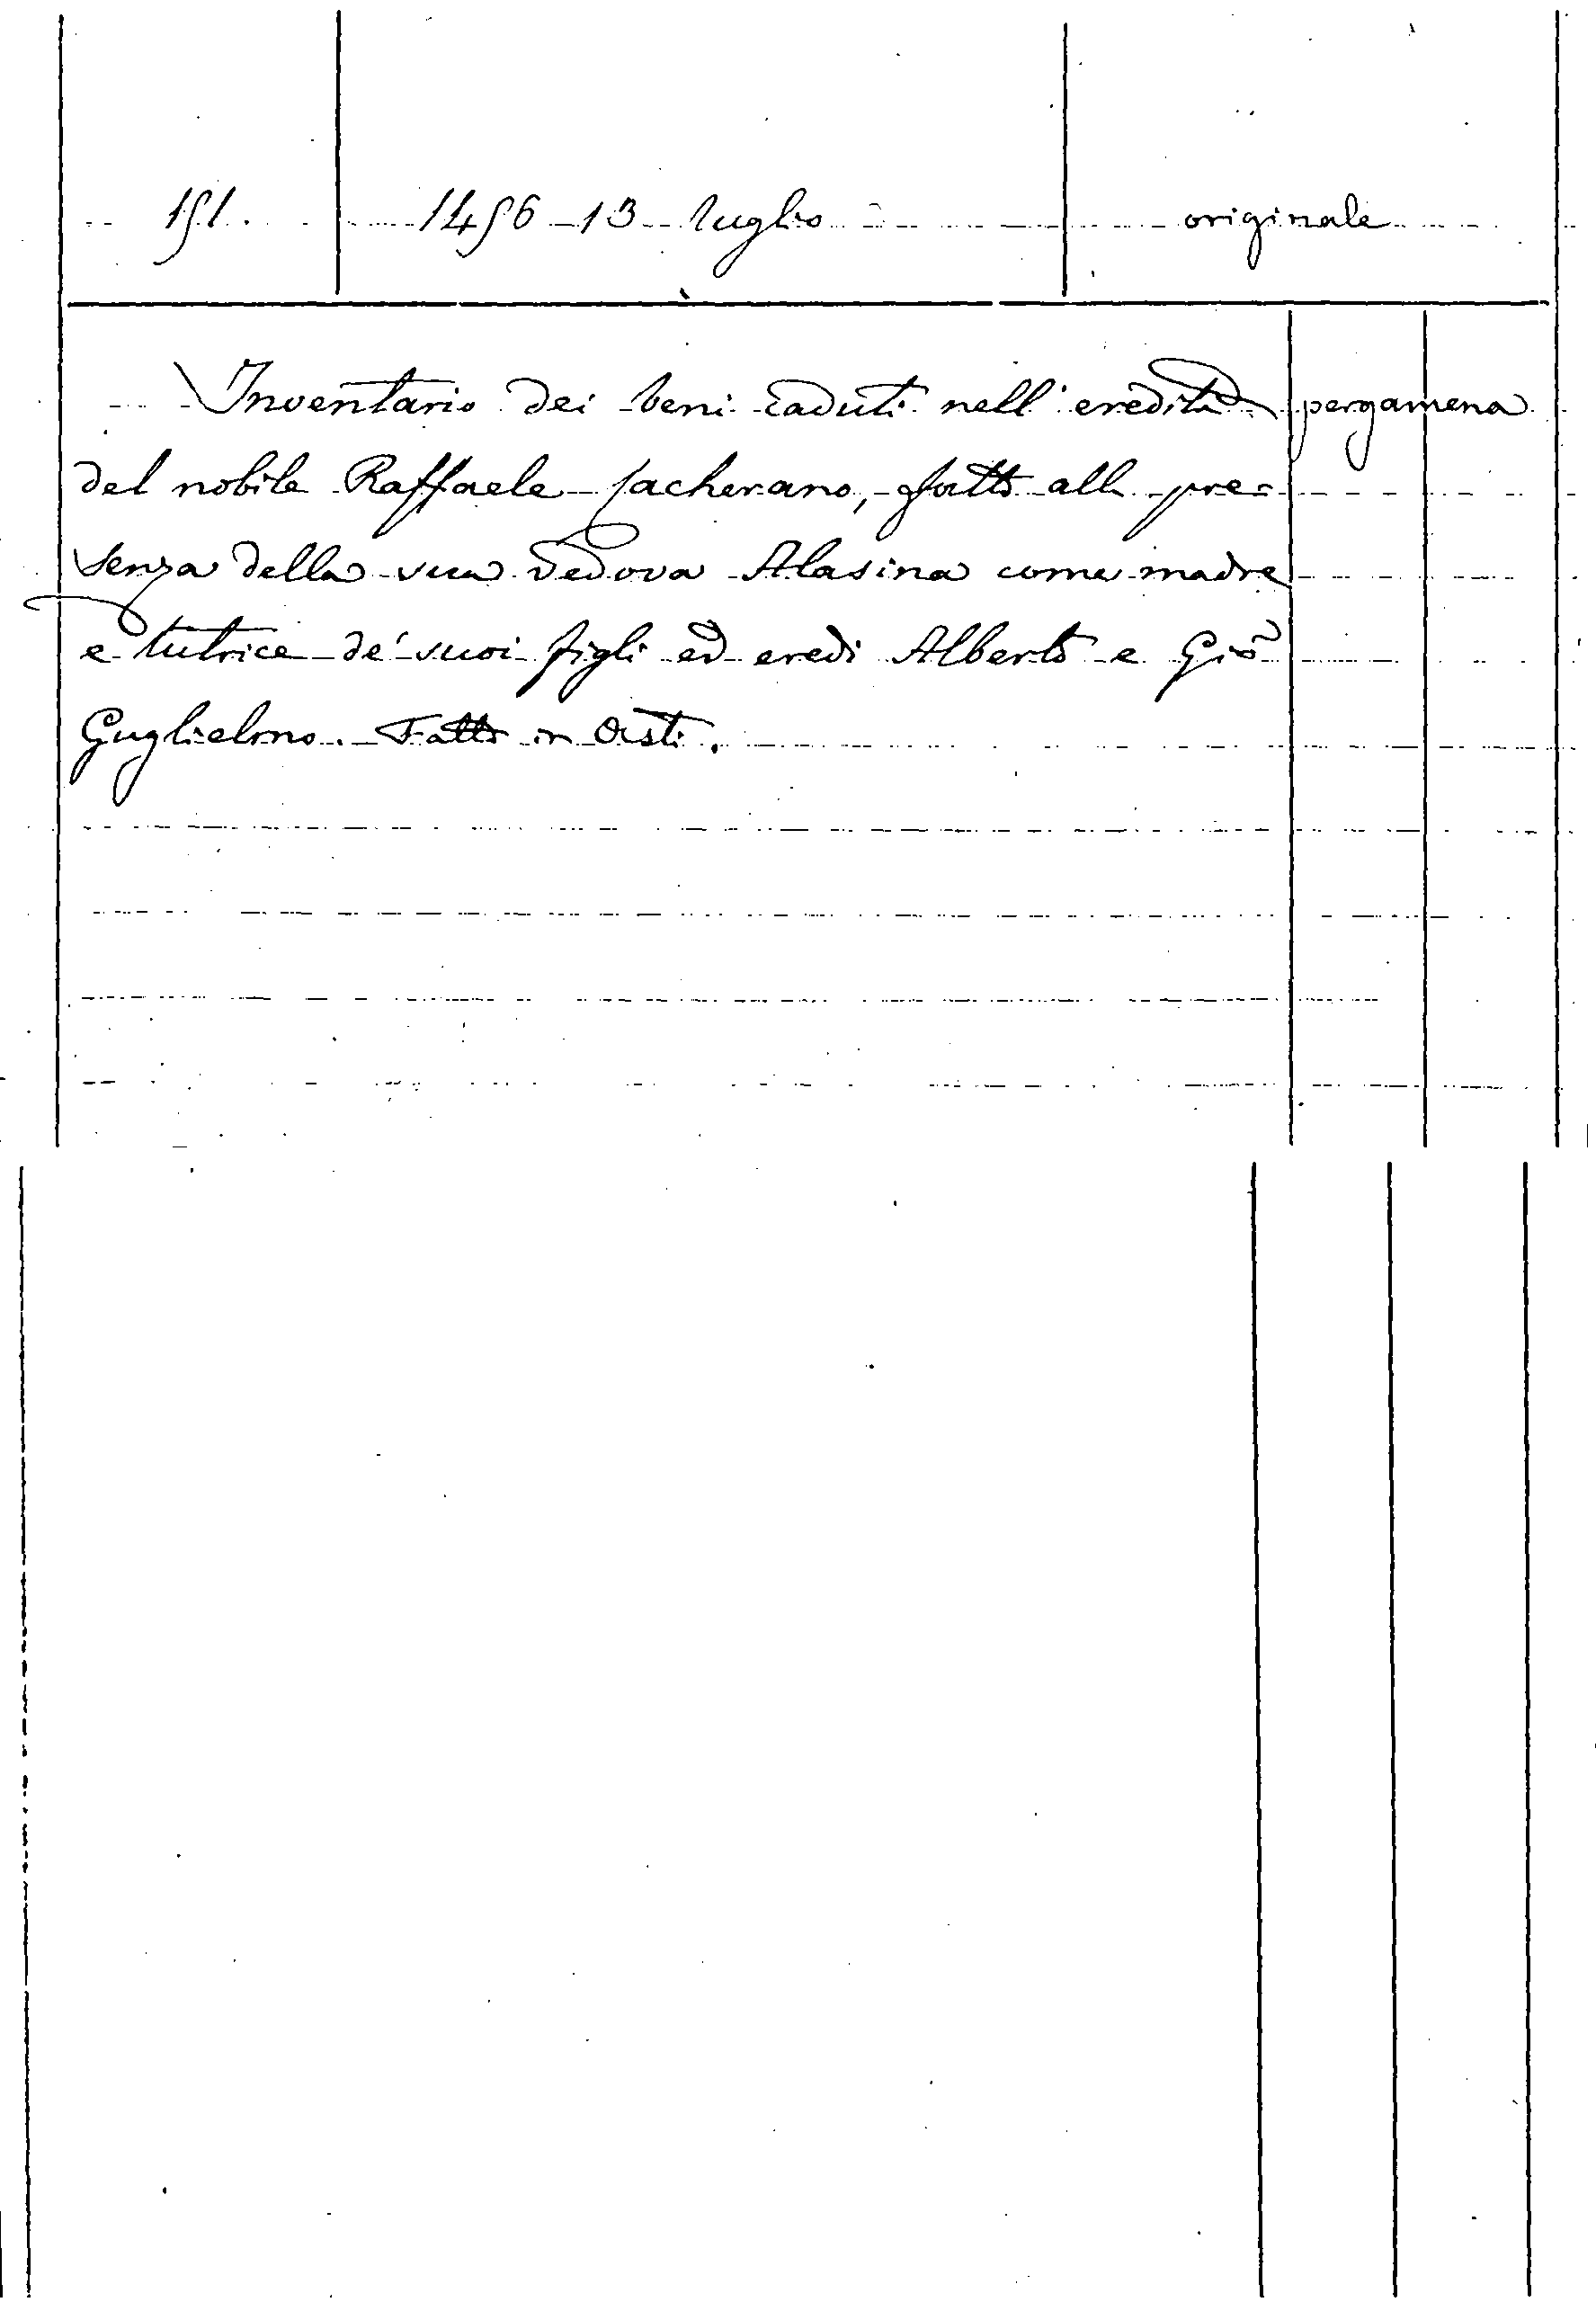 151. 1456 13 luglio originale
Inventario dei beni caduti nell'eredità pergamena
del nobile Raffaele Cacherano, fatto alla pre-
senza della sua vedova Alasina come madre
e tutrice de' suoi figli ed eredi Alberto e Gio
Guglielmo. Fatto in Asti.